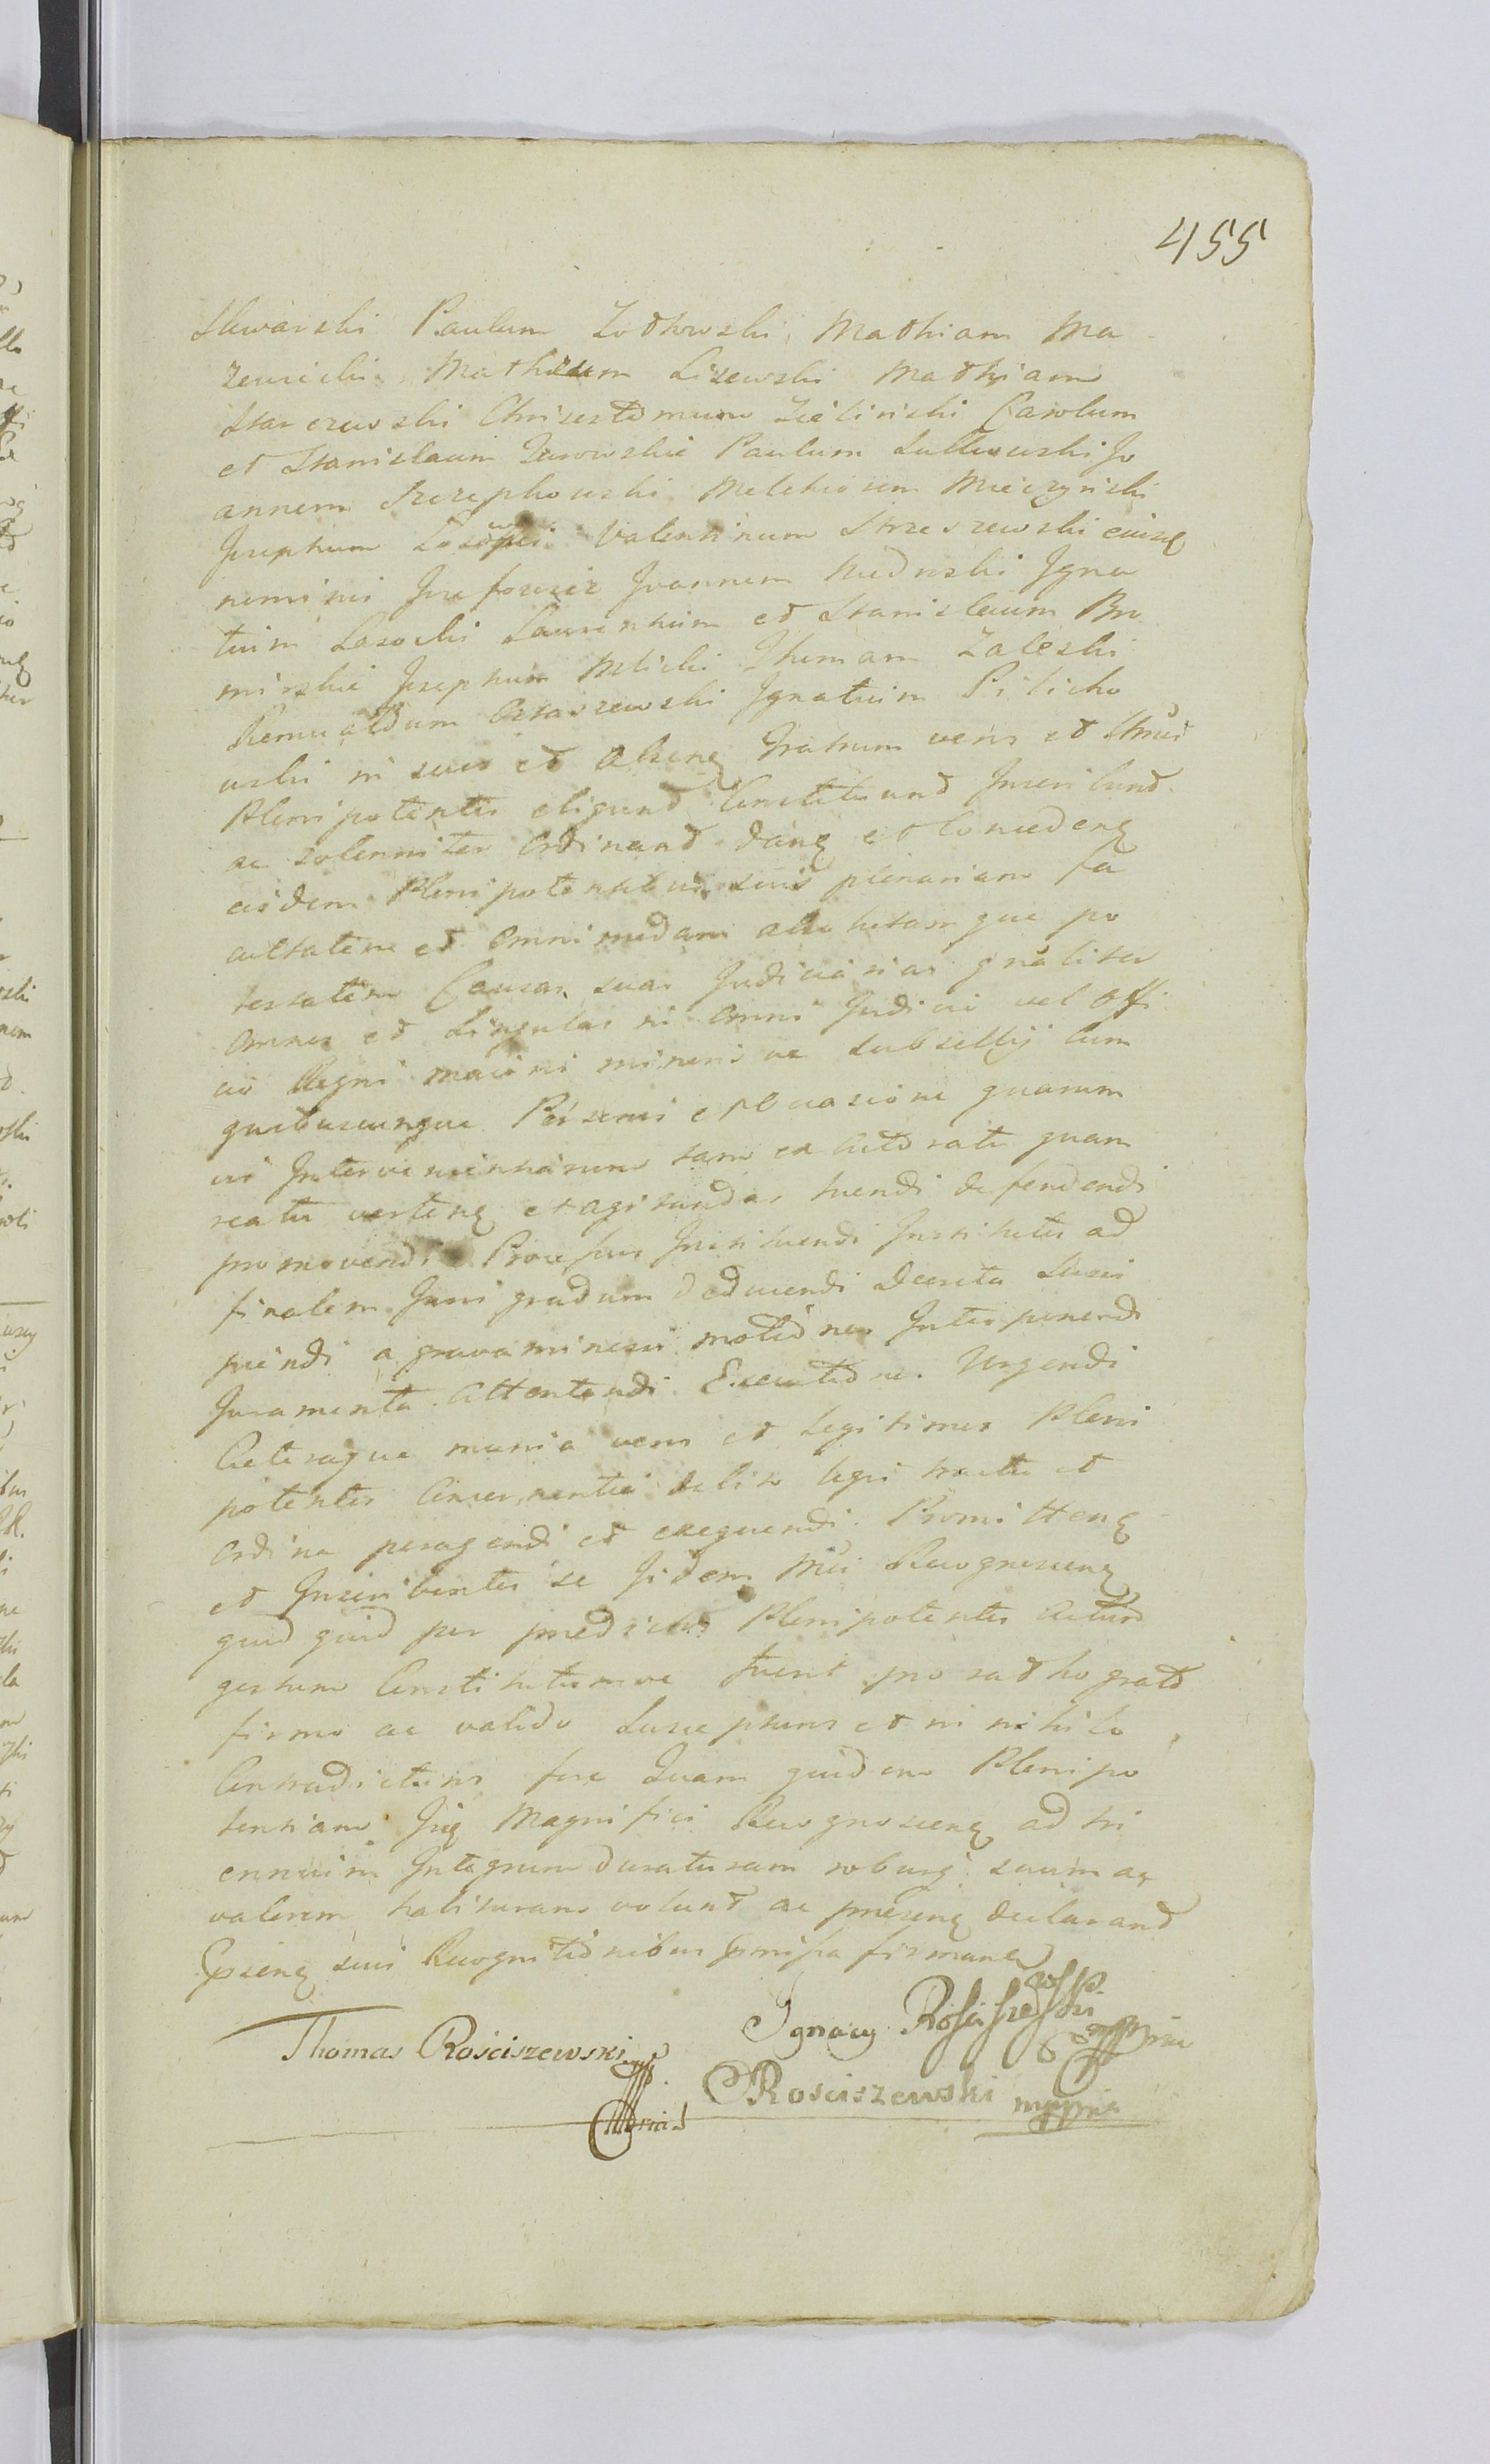 455
Skwarski Paulum Zothowski, Mathiam Ma
zewiecki Matheum Lisewski Mathiam
Starczewski Chrisostomum Zielinski Carolum
et Stanislaum Zurowskie Paulum Sulkowski Jo
annem Szczepkowski Melchiorem Mieczynski
Josephum Valentinum Strzeszewski eiusq
nemini Joannem Niedrski Igna
tium Lasocki Laurentium et Stanislaum Bro
mirskie Josephum Mlicki Thomam Zaleski
Romualdum Ostaszewski Ignatium Pilicho
wski in suos et Absenq Gratum veros et
Plenipotentes eligend Constituend Inscribend
ac solenniter Ordinand danq et Concedenq
eisdem Plenipotentibus suis plenariam fa
cultatem et Omnimodam absolutamque po
testatem Causas suas Judiciarias gnaliter
Omnes et Singulas in Omni Judicio vel Offi
cio Regni maioris minoris ve Subsellij cum
quibuscunque Personis et Occasione quarum
vis Intervenientiarum tam ex Actoratu quam
reatu vertenq et agitandas tuendi defendendi
promovendi Processus Instituendi Institutos ad
finalem Juris gradum deducendi Decreta Susci
piendi a gravaminosis motiones Interponendi
Juramenta Attentandi Executiones Urgendi
Caeteraque munia veros et Legitimos Pleni
potentes Concernentia debito legis tractu et
Ordine peragendi et exequendi Promittenq
et Inscribentes se Iidem Mci Recognoscenq
quid quid per praedictos Plenipotentes Actum
gestum Constitutumve fuerit pro ratho grato
firmo ac valido Suscepturos et in nihilo
Contradicturos fore Quam quidem Plenipo
tentiam Iiq Magnifici Recognoscenq ad tri
ennium Integrum duraturam roburq suum ac
valorem habituram volunt ac praesenq declarand
suis Recognitionibus firmanq
Thomas Rosciszewski
Ignacy Rosciszewski
Rosciszewski mppria